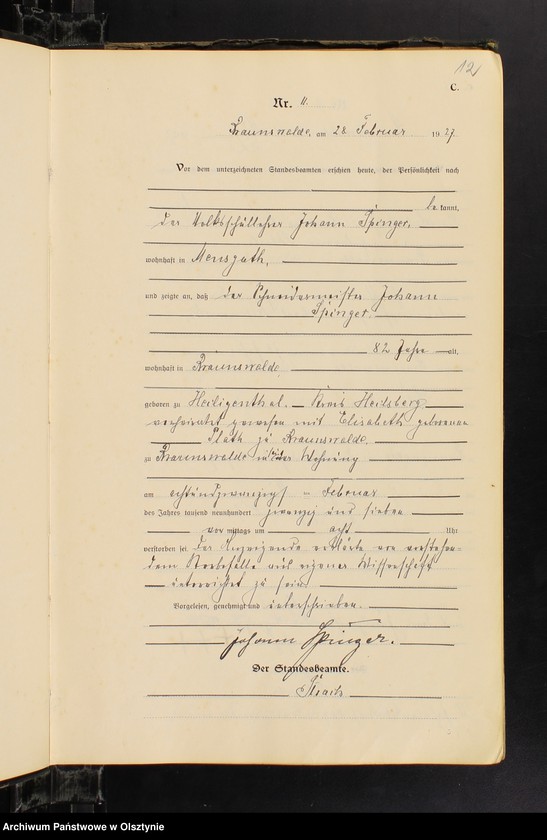 12
C.
Nr. 11.
Braunswalde, am 28 Februar 1927
Vor dem unterzeichneten Standesbeamten erschien heute, der Persönlichkeit nach
be kannt,
der Volksschullehrer Johann Spinger,
wohnhaft in Mensguth,
und zeigte an, daß der Schneidermeister Johann
Spinger
82 Jahre alt,
wohnhaft in Braunswalde
geboren zu Heiligenthal, Kreis Heilsberg
verheiratet gewesen mit Elisabeth geborenen
Plath zu Braunswalde.
zu Braunswalde in Wohnung
am achtundzwanzigst en Februar
des Jahres tausend neunhundert zwanzig und sieben
vor mittags um acht Uhr
verstorben sei. Der Anzeigende erklärte von vorstehen-
dem Sterbefalle aus eigener Wissenschaft
unterrichtet zu sein
Vorgelesen, genehmigt und unterschrieben.
Johann Spinger.
Der Standesbeamte.
Archiwum Państwowe w Olsztynie